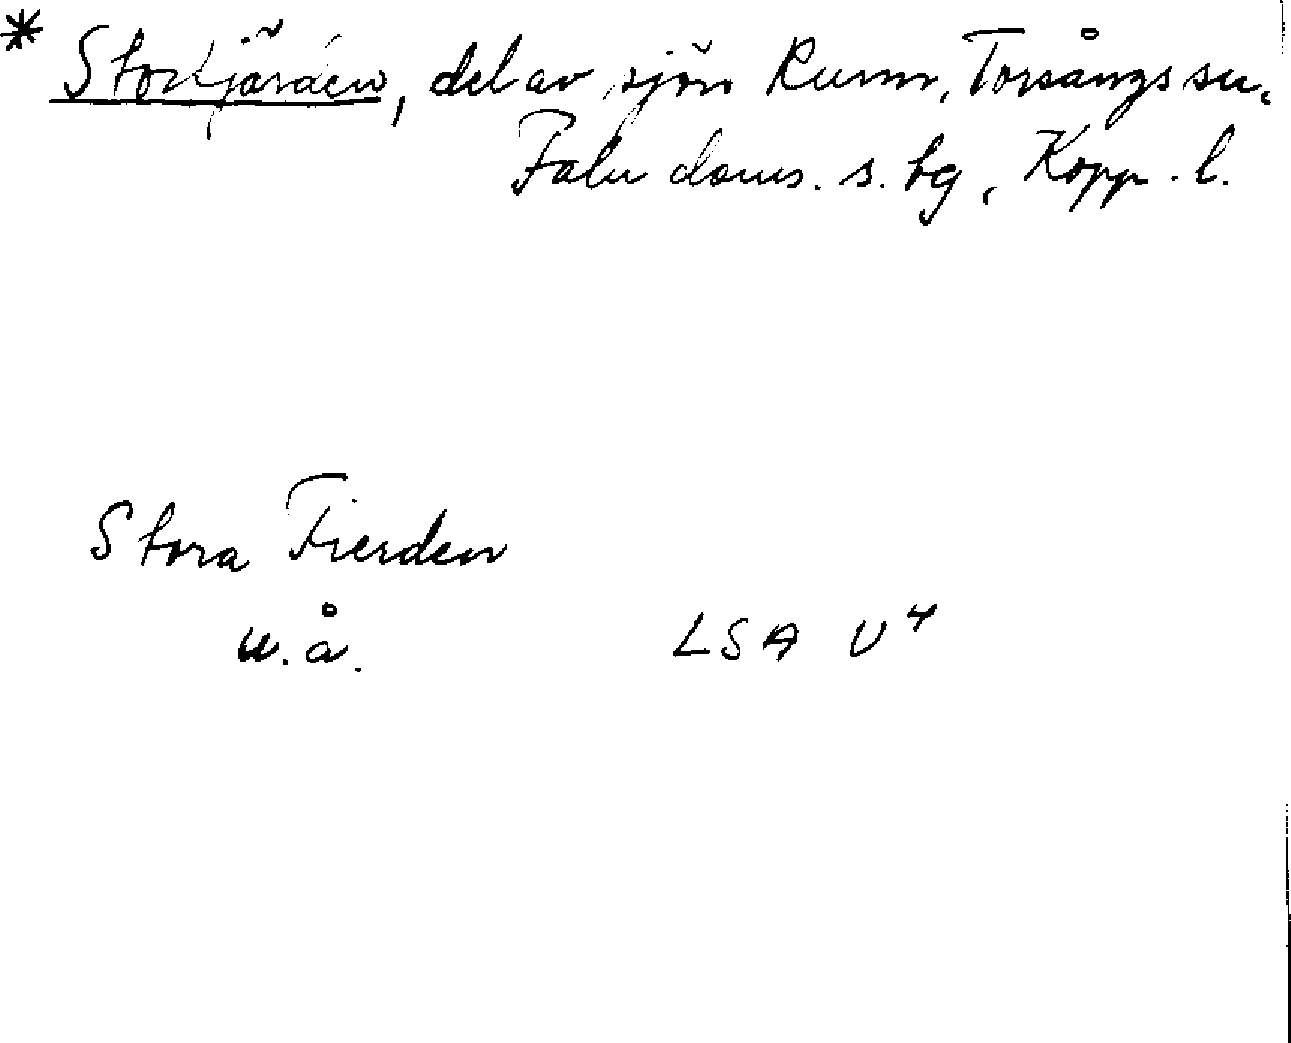 * Storfjärden, del av sjön Runn, Torsångs sn.
Falu doms. s. tg, Kopp. l.
Stora Fierden
u. å. LSA U4